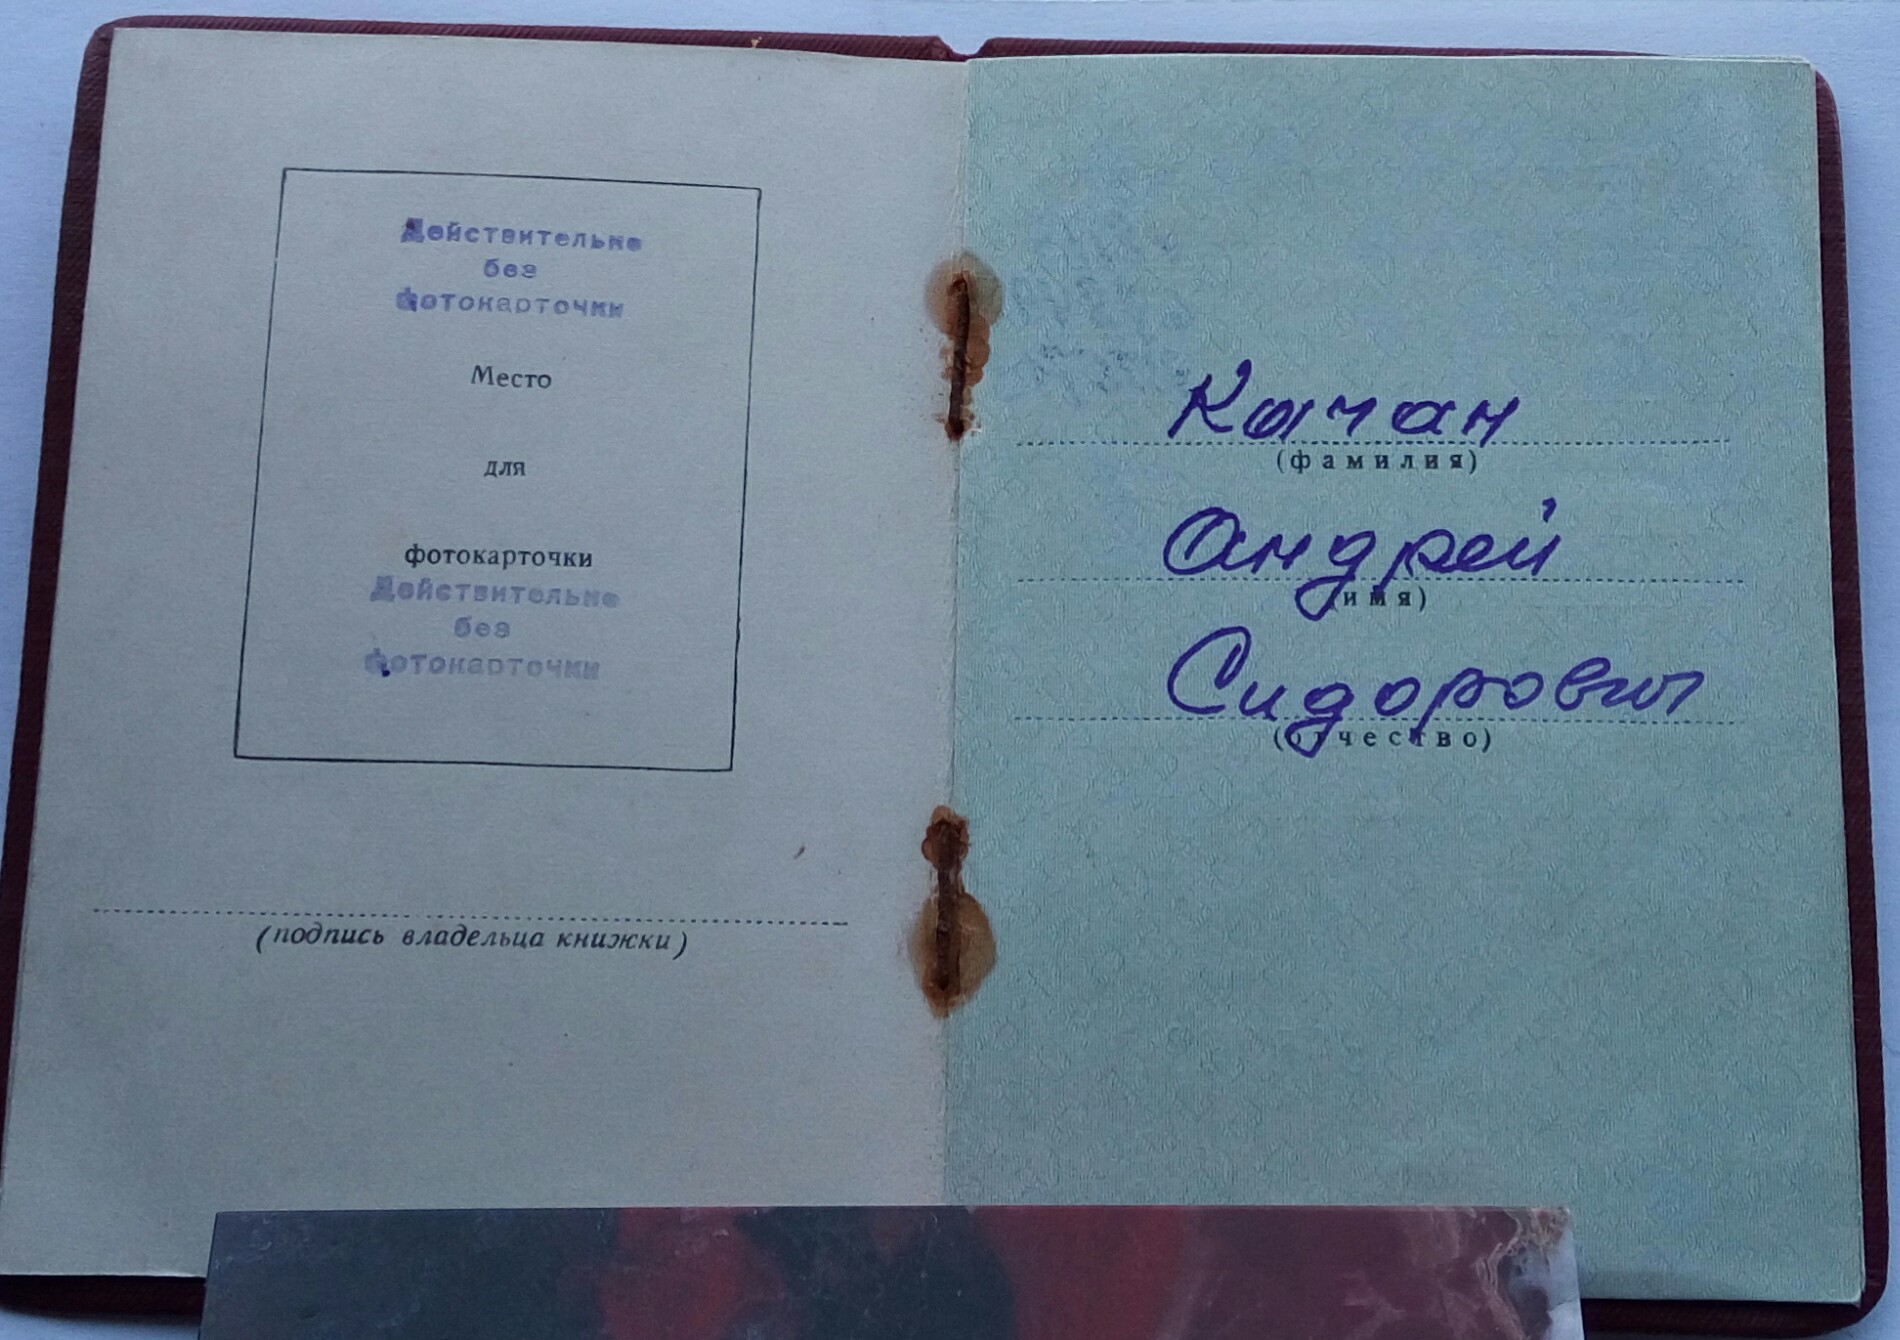 Действительно
без
фотокарточки
Место
для
фотокарточки
Действительно
без
фотокарточки
(подпись владельца книжки)
Кычан
(фамилия)
Андрей
(имя)
Сидорович
(отчество)